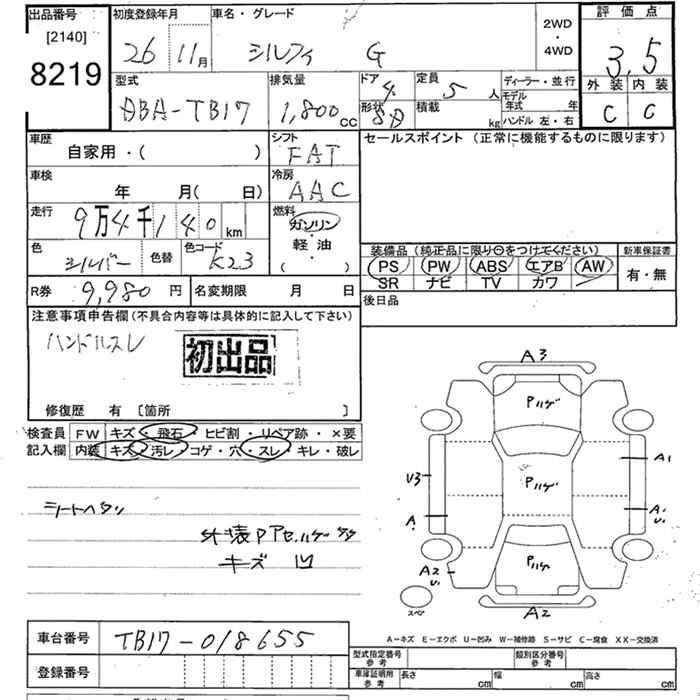 出品番号
[2140]
8219
初度登録年月
26 11月
車名・グレード
シルフィ G
2WD
・
4WD
評価点
3.5
外装 内装
C C
型式
DBA-TB17
排気量
1,800cc
ドア 4
形状 SD
定員 5人
積載 kg
ディーラー・並行
モデル年式 年
ハンドル 左・右
車歴
自家用・( )
シフト
FAT
セールスポイント (正常に機能するものに限ります)
車検
年 月( 日)
冷房
AAC
走行
9万4千140km
燃料
ガソリン
・
軽油
( )
色
シルバー
色替
色コード
K23
装備品 (純正品に限り○をつけてください)
PS PW ABS エアB AW
SR ナビ TV カワ
新車保証書
有・無
R券 9,980円
名変期限 月 日
後日品
注意事項申告欄(不具合内容等は具体的に記入して下さい)
ハンドルスレ
初出品
修復歴 有 [箇所 ]
検査員
記入欄
FW キズ・飛石・ヒビ割・リペア跡・×要
内装 キズ・汚レ・コゲ・穴・スレ・キレ・破レ
シートヘタリ
キズ 凹
A3
Pハゲ
A1
U3
Pハゲ
A
A1
U1
Pハゲ
A2
U1
スペア
A2
A-キズ E-エクボ U-凹み W-補修跡 S-サビ C-腐食 XX-交換済
車台番号 TB17-018655
登録番号
型式指定番号
参考
類別区分番号
参考
車庫証明用
参考
長さ cm
幅 cm
高さ cm